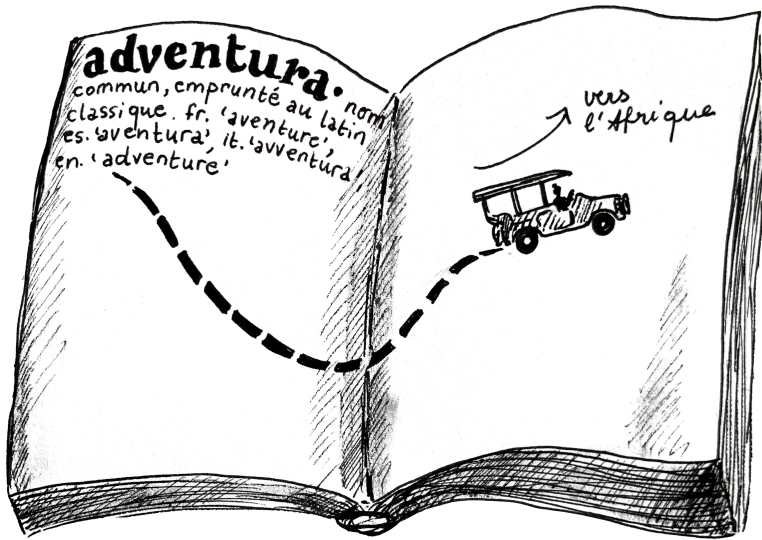 adventura. nom
commun, emprunté au latin
classique. fr. 'aventure',
es. 'aventura', it. 'avventura'
en. 'adventure'
vers
l'Afrique